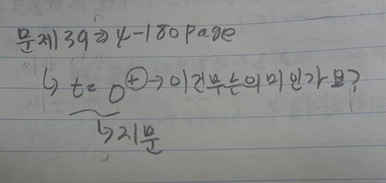 문제39⇒4-180page
↳ t=0⊕→이건무슨의미인가요?
↳지문